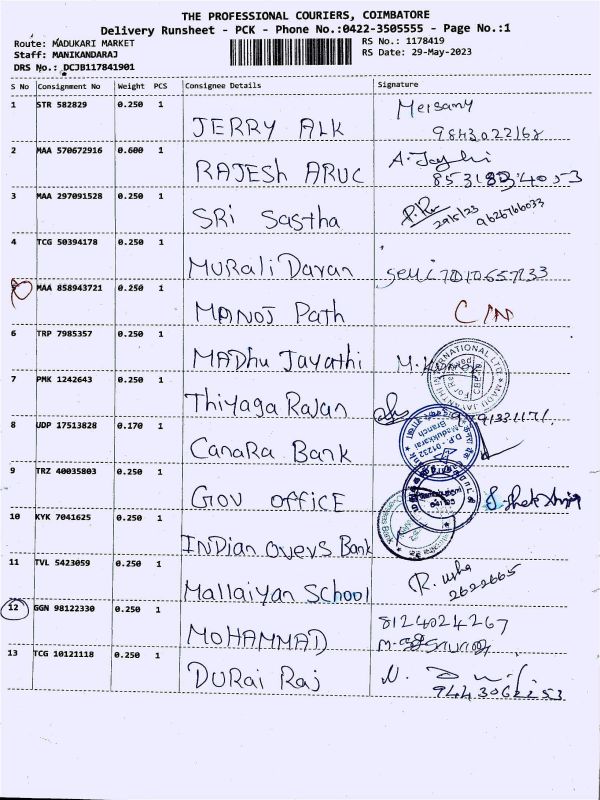 THE PROFESSIONAL COURIERS, COIMBATORE
Delivery Runsheet - PCK - Phone No.:0422-3505555 - Page No.:1
Route: MADUKARI MARKET
Staff: MANIKANDARAJ
DRS No.: DCJB117841901
RS No.: 1178419
RS Date: 29-May-2023
S No Consignment No Weight PCS Consignee Details Signature
1 STR 582829 0.250 1 JERRY ALK Meisany
9843022168
2 MAA 570672916 0.600 1 RAJESH ARUC A. Jayhi
3 MAA 297091528 0.250 1 SRi Sastha
29/5/23 9626766033
4 TCG 50394178 0.250 1 MURali Daran
5 MAA 858943721 0.250 1 MANOJ Path C/N
6 TRP 7985357 0.250 1 MADhu Jayathi
7 PMK 1242643 0.250 1 Thiyaga Rajan
8 UDP 17513828 0.170 1 CanaRa Bank
D.P. - 01232
Madukkarai
Branch
9 TRZ 40035803 0.250 1 Gov office
10 KYK 7041625 0.250 1 INDian overs Bank
11 TVL 5423059 0.250 1 Mallaiyan School R. usha
2622665
12 GGN 98122330 0.250 1 MOHAMMAD 8124024267
13 TCG 10121118 0.250 1 DURai Raj